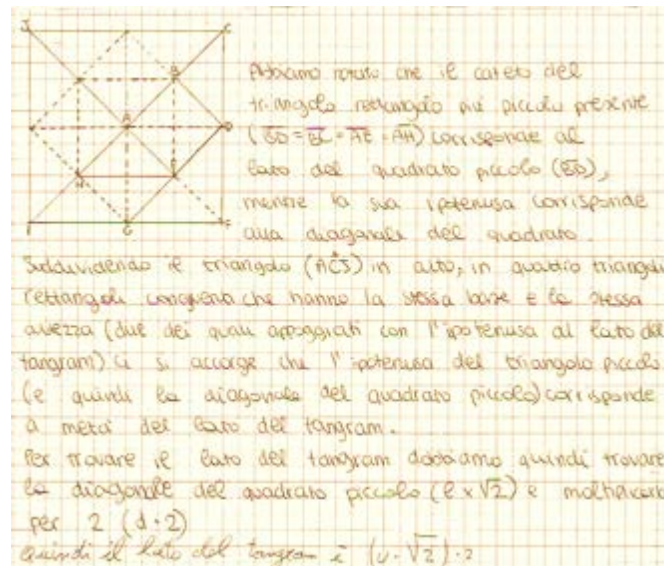 J
C
B
A
D
H
E
G
Abbiamo notato che il cateto del
triangolo rettangolo più piccolo presente
(= AE = AH) corrisponde al
lato del quadrato piccolo (ED),
mentre la sua ipotenusa corrisponde
alla diagonale del quadrato.
Suddividendo il triangolo (ACJ) in alto, in quattro triangoli
rettangoli congruenti che hanno la stessa base e la stessa
altezza (due dei quali appoggiati con l'ipotenusa al lato del
tangram) ci si accorge che l'ipotenusa del triangolo piccolo
(e quindi la diagonale del quadrato piccolo) corrisponde
a metà del lato del tangram.
Per trovare il lato del tangram dobbiamo quindi trovare
la diagonale del quadrato piccolo (l x √2) e moltiplicare
per 2 (d·2)
Quindi il lato del tangram è (u·√2)·2